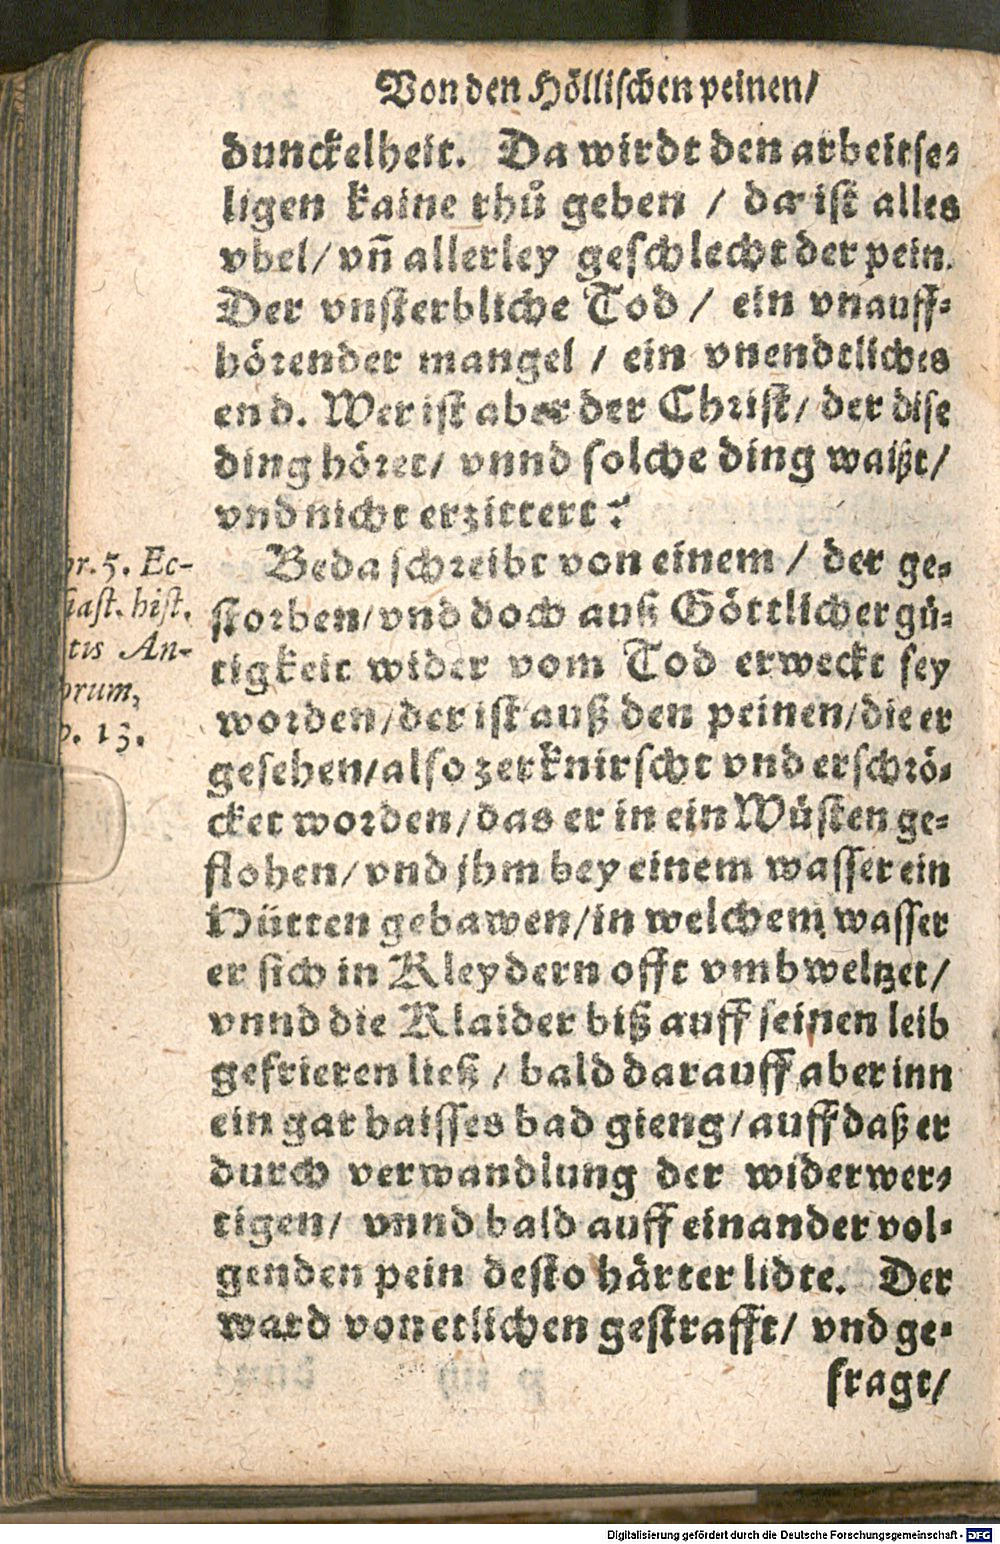 Von den Höllischen peinen/
dunckelheit. Da wirdt den arbeitse-
ligen kaine rhů geben / da ist alles
vbel/ vn̄ allerley geschlecht der pein.
Der vnsterbliche Tod / ein vnauff-
hörender mangel / ein vnendtliches
end. Wer ist aber der Christ/ der dise
ding höret/ vnnd solche ding waißt/
vnd nicht erzittert?
Beda schreibt von einem / der ge-
storben/ vnd doch auß Göttlicher gü-
tigkeit wider vom Tod erweckt sey
worden/ der ist auß den peinen/ die er
gesehen/ also zerknirscht vnd erschrö-
cket worden/ das er in ein Wüsten ge-
flohen/ vnd jhm bey einem wasser ein
Hütten gebawen/ in welchem wasser
er sich in Kleydern offt vmbweltzet/
vnnd die Klaider biß auff seinen leib
gefrieren ließ / bald darauff aber inn
ein gar haisses bad gieng/ auff daß er
durch verwandlung der widerwer-
tigen/ vnnd bald auff einander vol-
genden pein desto härter lidte. Der
ward von etlichen gestrafft/ vnd ge-
fragt/
br. 5. Ec-
siast. hist.
tis An-
orum,
p. 13.
Digitalisierung gefördert durch die Deutsche Forschungsgemeinschaft - DFG